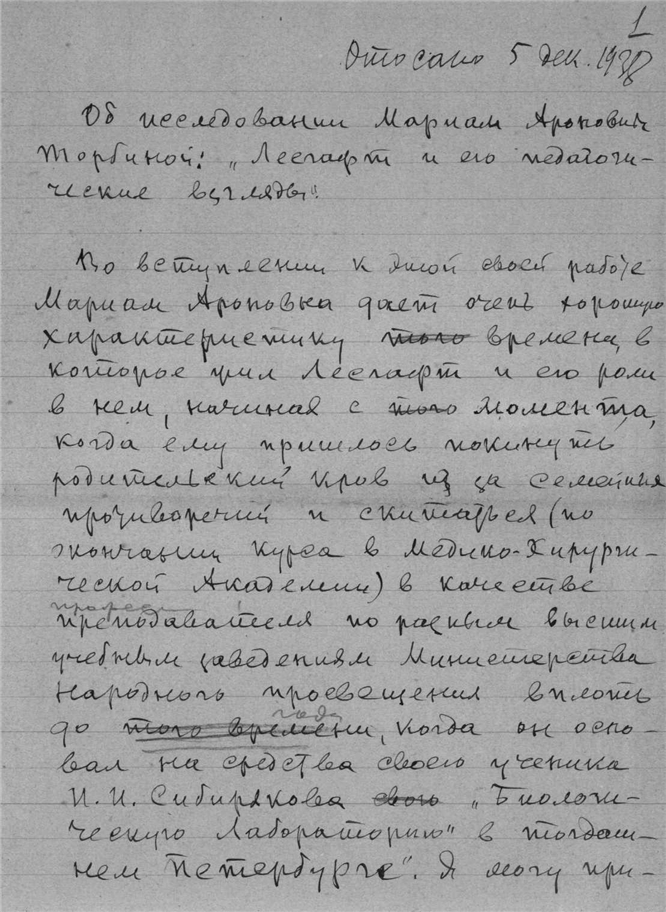 1
Отослано 5 дек. 1938
Об исследовании Мариам Ароновны
Торбиной: „Лесгафт и его педагоги-
ческие взгляды“
Во вступлении к этой своей работе
Мариам Ароновна дает очень хорошую
характеристику того времени, в
которое жил Лесгафт и его роли
в нем, начиная с того момента,
когда ему пришлось покинуть
родительский кров из за семейных
противоречий и скитаться (по
окончании курса в Медико-Хирурги-
ческой Академии) в качестве
преподавателя по разным высшим
учебным заведениям Министерства
Народного просвещения вплоть
года
до того времени, когда он осно-
вал на средства своего ученика
И. И. Сибирякова свою „Биологи-
ческую Лабораторию“ в тогдаш-
нем Петербурге“. Я могу при-